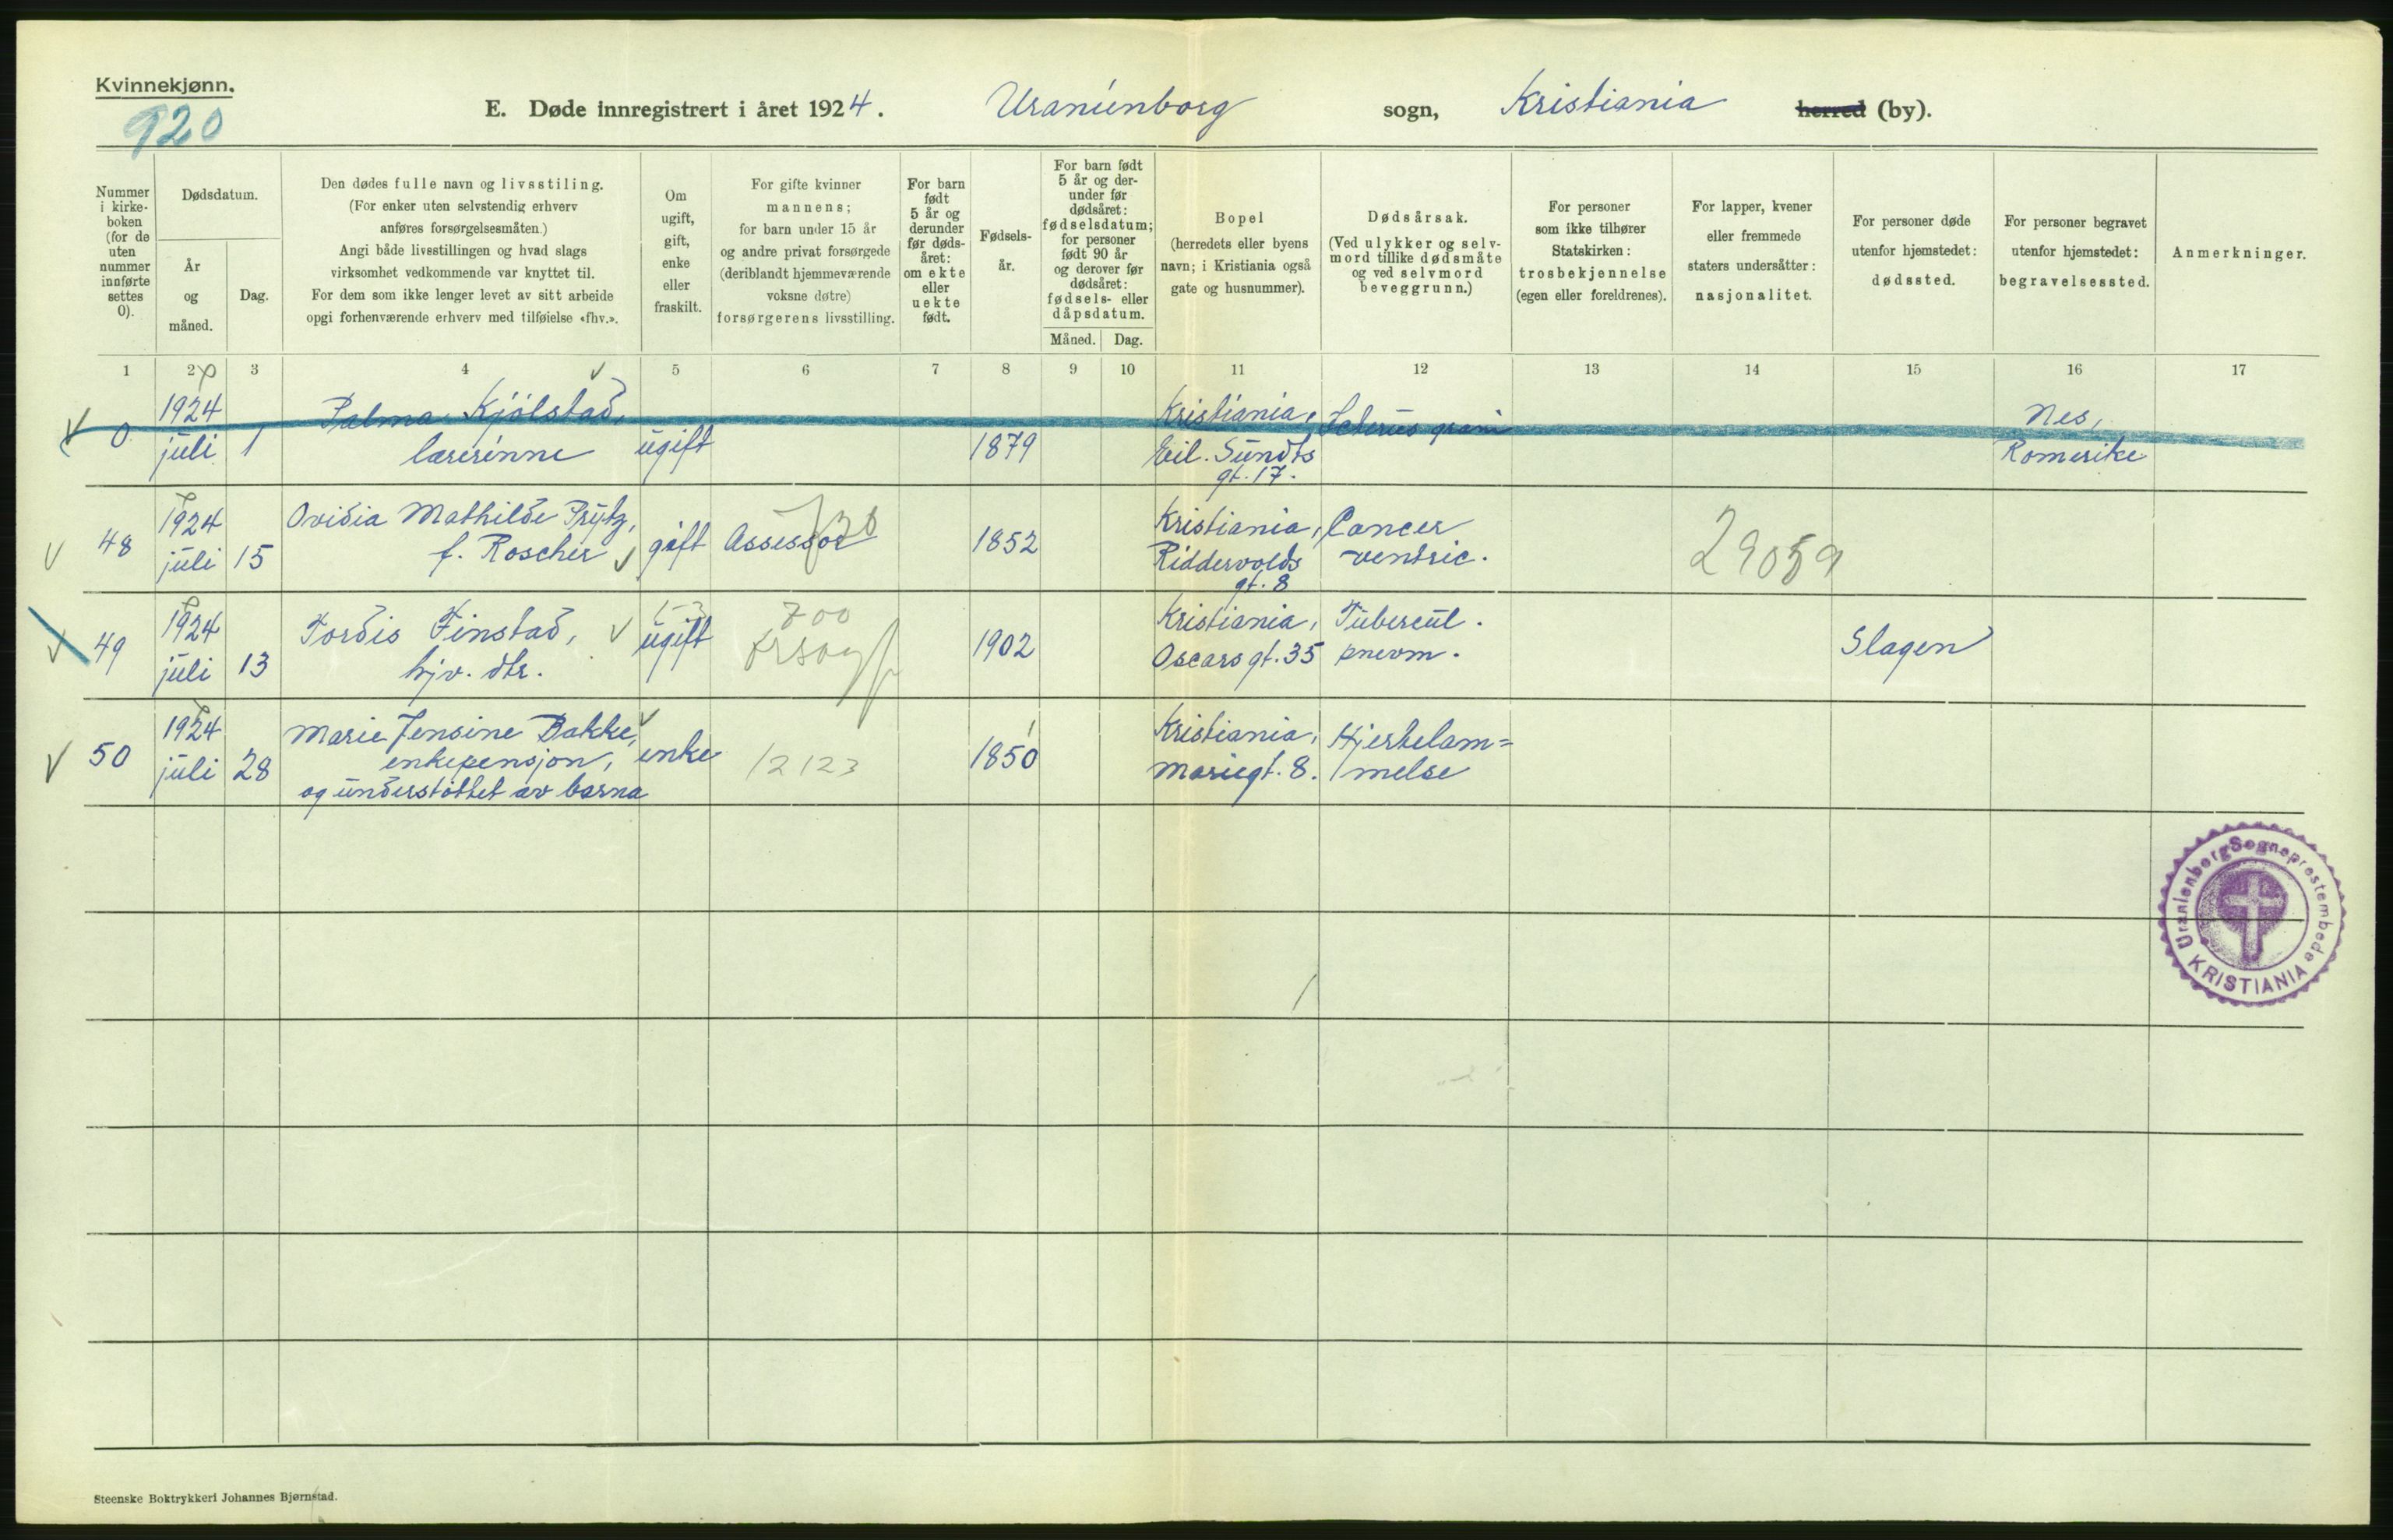 Kvinnekjønn.
920
E. Døde innregistrert i året 1924. Uranienborg sogn, Kristiania herred (by).
Nummer i kirke- boken (for de uten nummer innførte settes 0).
Dødsdatum.
År og måned.
Dag.
Den dødes fulle navn og livsstiling.
(For enker uten selvstendig erhverv
anføres forsørgelsesmåten.)
Angi både livsstillingen og hvad slags
virksomhet vedkommende var knyttet til.
For dem som ikke lenger levet av sitt arbeide
opgi forhenværende erhverv med tilføielse «fhv.».
Om ugift, gift, enke eller fraskilt.
For gifte kvinner
mannens;
for barn under 15 år
og andre privat forsørgede
(deriblandt hjemmeværende
voksne døtre)
forsørgerens livsstilling.
For barn født 5 år og derunder før døds- året: om ekte eller uekte født.
Fødsels- år.
For barn født 5 år og der- under før dødsåret: fødselsdatum; for personer født 90 år og derover før dødsåret: fødsels- eller dåpsdatum.
Måned. Dag.
Bopel
(herredets eller byens
navn; i Kristiania også
gate og husnummer).
Dødsårsak.
(Ved ulykker og selv-
mord tillike dødsmåte
og ved selvmord
beveggrunn.)
For personer
som ikke tilhører
Statskirken:
trosbekjennelse
(egen eller foreldrenes).
For lapper, kvener
eller fremmede
staters undersåtter:
nasjonalitet.
For personer døde
utenfor hjemstedet:
dødssted.
For personer begravet
utenfor hjemstedet:
begravelsessted.
Anmerkninger.
1 2 3 4 5 6 7 8 9 10 11 12 13 14 15 16 17
1924 Palma Kjölstad, Kristiania, Icterus grav Nes,
0 juli 1 lærerinne ugift 1879 Eil. Sundts Romerike
gt. 17.
1924 Ovidia Mathilde Prytz, Kristiania, Cancer
48 juli 15 f. Roscher gift Assessor 1852 Riddervolds ventric. 29059
gt. 8
1924 Tordis Finstad, 700 Kristiania, Tubercul.
49 juli 13 hjv. dtr. ugift 1902 Oscars gt. 35 pneum. Slagen
1924 Marie Jensine Bakke, Kristiania, Hjertelam=
50 juli 28 enkepensjon, enke 12123 1850 Mariegt. 8. melse
og understöttet av barna
Uranienborg Sogneprestembede
KRISTIANIA
Steenske Boktrykkeri Johannes Bjørnstad.